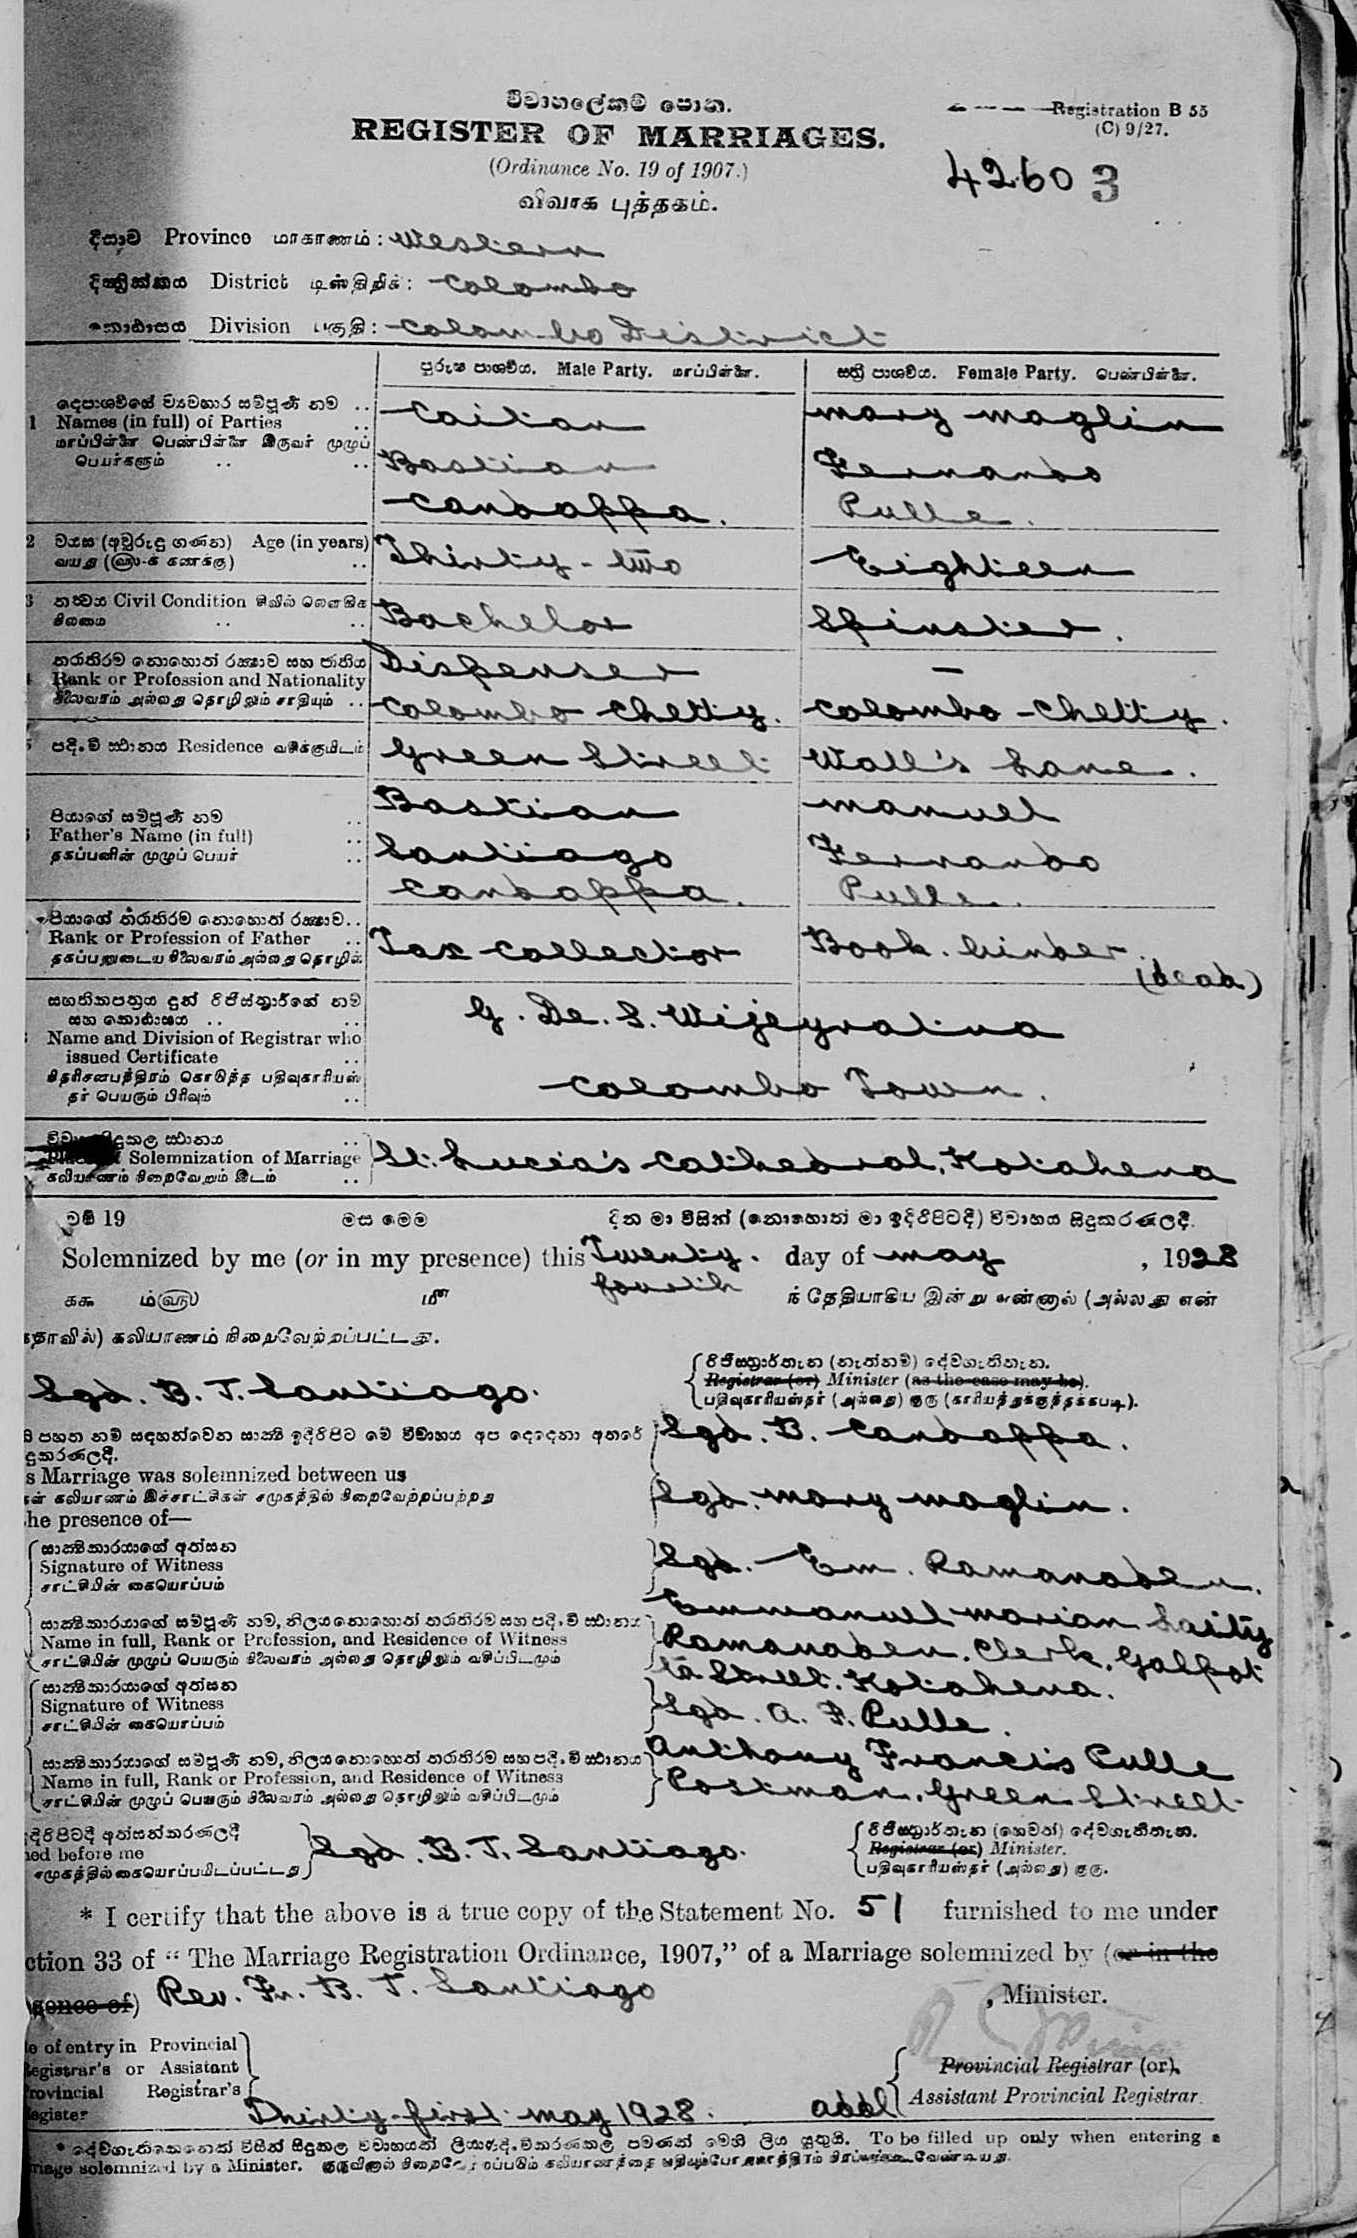 විවාහලේකම් පොත.
REGISTER OF MARRIAGES.
(Ordinance No. 19 of 1907.)
விவாக புத்தகம்.
Registration B 55
(C) 9/27.
42603
දිසාව Province மாகாணம் : Western
දිස්ත්‍රික්කය District டிஸ்திறிக் : Colombo
කොට්ඨාසය Division பகுதி : Colombo District
පුරුෂ පාර්ශවය. Male Party. மாப்பிள்ளை.
ස්ත්‍රී පාර්ශවය. Female Party. பெண்பிள்ளை.
1 Names (in full) of Parties
மாப்பிள்ளை பெண்பிள்ளை இருவர் முழுப்
பெயர்களும்
Caitan Bastian Candappa.
Mary Maglin Fernando Pulle.
2 වයස (අවුරුදු ගණන) Age (in years)
Thirty-two
Eighteen
3 තත්වය Civil Condition சிவில் லௌகிக
நிலமை
Bachelor
Spinster.
Rank or Profession and Nationality
நிலைவரம் அல்லது தொழிலும் சாதியும்
Dispenser
Colombo Chetty.
—
Colombo-Chetty.
පදිංචි ස්ථානය Residence வசிக்குமிடம்
Green Street
Wall's Lane.
පියාගේ සම්පූර්ණ නම
Father's Name (in full)
தகப்பனின் முழுப் பெயர்
Bastian Santiago Candappa.
Manuel Fernando Pulle.
පියාගේ තරාතිරම නොහොත් රක්ෂාව
Rank or Profession of Father
தகப்பனுடைய நிலைவரம் அல்லது தொழில்
Tax Collector
Book-binder. (dead)
සහතිකපත්‍රය දුන් රෙජිස්ත්‍රාර්ගේ නම
සහ කොට්ඨාසය
Name and Division of Registrar who
issued Certificate
தர் பெயரும் பிரிவும்
G. De. S. Wijeyratina
Colombo Town.
Solemnization of Marriage
கலியாணம் நிறைவேறும் இடம்
St. Lucia's Cathedral, Kotahena
වර්ෂ 19 මස මෙම දින මා විසින් (නොහොත් මා ඉදිරිපිටදී) විවාහය සිදුකරණලදී.
Solemnized by me (or in my presence) this Twenty-fourth day of May, 1928
ந் தேதியாகிய இன்று என்னால் (அல்லது என்
கலியாணம் நிறைவேற்றப்பட்டது.
Sgd. B. T. Santiago.
රෙජිස්ත්‍රාර්තැන (නැත්නම්) දේවගැතිතැන.
Registrar (or) Minister (as the case may be).
பதிவுகாரியஸ்தர் (அல்லது) குரு (காரியத்துக்குத்தக்கபடி).
පහත නම් සඳහන්වෙන සාක්ෂි ඉදිරිපිට මේ විවාහය අප දෙදෙනා අතරේ
s Marriage was solemnized between us
he presence of—
Sgd. B. Candappa.
Sgd. Mary Maglin.
සාක්ෂිකාරයාගේ අත්සන
Signature of Witness
சாட்சியின் கையொப்பம்
Sgd. Em. Ramanaden.
සාක්ෂිකාරයාගේ සම්පූර්ණ නම, නිලය නොහොත් තරාතිරම සහ පදිංචි ස්ථානය
Name in full, Rank or Profession, and Residence of Witness
சாட்சியின் முழுப் பெயரும் நிலைவரம் அல்லது தொழிலும் வசிப்பிடமும்
Emmanuel Marian
Ramanaden, Clerk, Galpot
ta Street, Kotahena.
සාක්ෂිකාරයාගේ අත්සන
Signature of Witness
சாட்சியின் கையொப்பம்
Sgd. A. F. Pulle.
සාක්ෂිකාරයාගේ සම්පූර්ණ නම, නිලය නොහොත් තරාතිරම සහ පදිංචි ස්ථානය
Name in full, Rank or Profession, and Residence of Witness
சாட்சியின் முழுப் பெயரும் நிலைவரம் அல்லது தொழிலும் வசிப்பிடமும்
Anthony Francis Pulle
Postman, Green Street
before me
Sgd. B. T. Santiago.
රෙජිස්ත්‍රාර්තැන (හෙවත්) දේවගැතිතැන.
Registrar (or) Minister.
பதிவுகாரியஸ்தர் (அல்லது) குரு.
* I certify that the above is a true copy of the Statement No. 51 furnished to me under
ction 33 of “The Marriage Registration Ordinance, 1907,” of a Marriage solemnized by (or in the
sence of) Rev. Fr. B. T. Santiago, Minister.
e of entry in Provincial
Registrar's or Assistant
Provincial Registrar's
Register
Thirty-first May 1928.
addl
Provincial Registrar (or)
Assistant Provincial Registrar
To be filled up only when entering a
riage solemnized by a Minister.